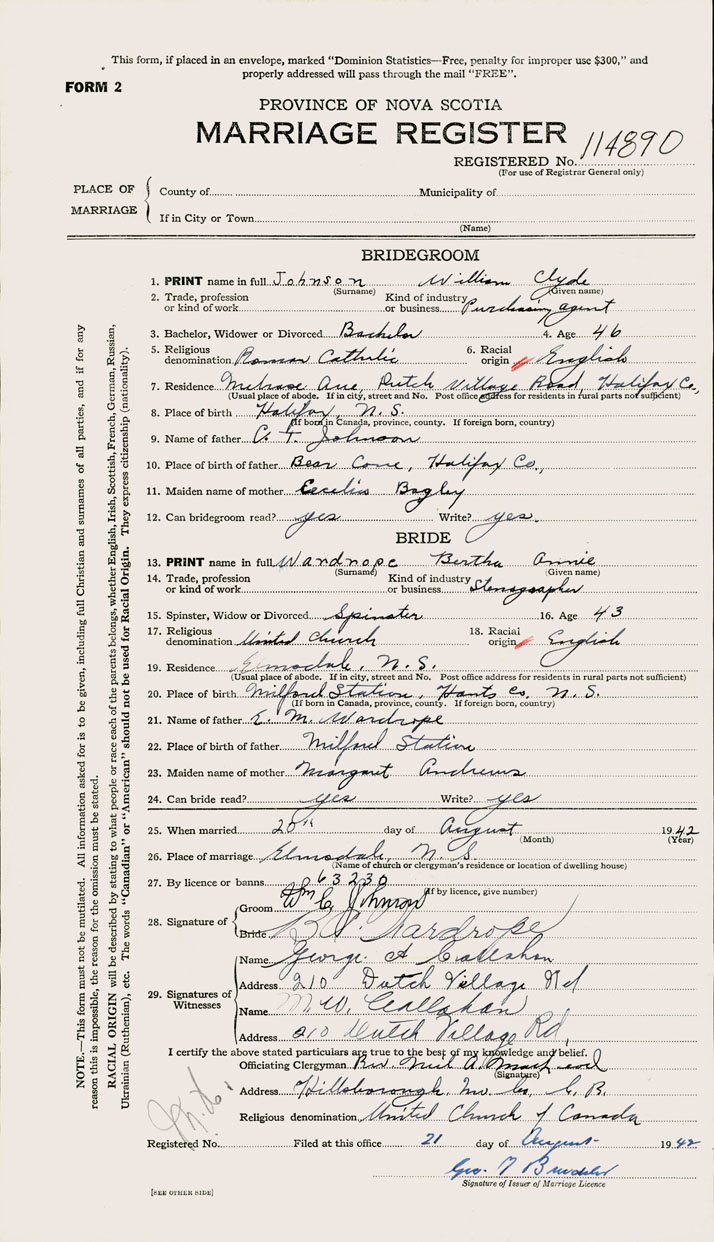 This form, if placed in an envelope, marked "Dominion Statistics—Free, penalty for improper use $300," and
properly addressed will pass through the mail "FREE".
FORM 2
PROVINCE OF NOVA SCOTIA
MARRIAGE REGISTER
REGISTERED No. 114890
(For use of Registrar General only)
PLACE OF MARRIAGE
County of Municipality of
If in City or Town
(Name)
BRIDEGROOM
1. PRINT name in full Johnson William Clyde
(Surname) (Given name)
2. Trade, profession or kind of work Kind of industry or business Purchasing agent
3. Bachelor, Widower or Divorced Bachelor 4. Age 46
5. Religious denomination Roman Catholic 6. Racial origin English
7. Residence Melrose Ave, Dutch Village Road, Halifax Co.,
(Usual place of abode. If in city, street and No. Post office address for residents in rural parts not sufficient)
8. Place of birth Halifax, N.S.
(If born in Canada, province, county. If foreign born, country)
9. Name of father C. T. Johnson
10. Place of birth of father Bear Cove, Halifax Co.,
11. Maiden name of mother Cecelia Bagley
12. Can bridegroom read? yes Write? yes.
BRIDE
13. PRINT name in full Wardrope Bertha Annie
(Surname) (Given name)
14. Trade, profession or kind of work Kind of industry or business Stenographer
15. Spinster, Widow or Divorced Spinster 16. Age 43
17. Religious denomination United Church 18. Racial origin English
19. Residence Elmsdale, N.S.
(Usual place of abode. If in city, street and No. Post office address for residents in rural parts not sufficient)
20. Place of birth Milford Station, Hants Co, N.S.
(If born in Canada, province, county. If foreign born, country)
21. Name of father E. M. Wardrope
22. Place of birth of father Milford Station
23. Maiden name of mother Margaret Andrews
24. Can bride read? yes Write? yes
25. When married 20th day of August 1942
(Month) (Year)
26. Place of marriage Elmsdale, N.S.
(Name of church or clergyman's residence or location of dwelling house)
27. By licence or banns 63230
(If by licence, give number)
28. Signature of
Groom Wm C Johnson
Bride B. A. Wardrope
29. Signatures of Witnesses
Name George A Callahan
Address 210 Dutch Village Rd
Name M. W. Callahan
Address 210 Dutch Village Rd,
I certify the above stated particulars are true to the best of my knowledge and belief.
Officiating Clergyman Rev Neil A.
(Signature)
Address Hillsborough, Inv. Co., C.B.
Religious denomination United Church of Canada
Registered No. Filed at this office 21 day of August 1942
Geo.
Signature of Issuer of Marriage Licence
[SEE OTHER SIDE]
NOTE.—This form must not be mutilated. All information asked for is to be given, including full Christian and surnames of all parties, and if for any
reason this is impossible, the reason for the omission must be stated.
RACIAL ORIGIN will be described by stating to what people or race each of the parents belongs, whether English, Irish, Scottish, French, German, Russian,
Ukrainian (Ruthenian), etc. The words "Canadian" or "American" should not be used for Racial Origin. They express citizenship (nationality).